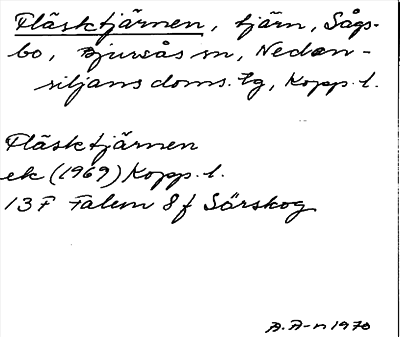 Fläsktjärnen, tjärn, Sågs-
bo, Bjursås sn, Nedan-
siljans doms. tg, Kopp. l.
Fläsktjärnen
ek (1969) Kopp. l.
13 F Falun 8 f Sörskog
A. A-n 1970